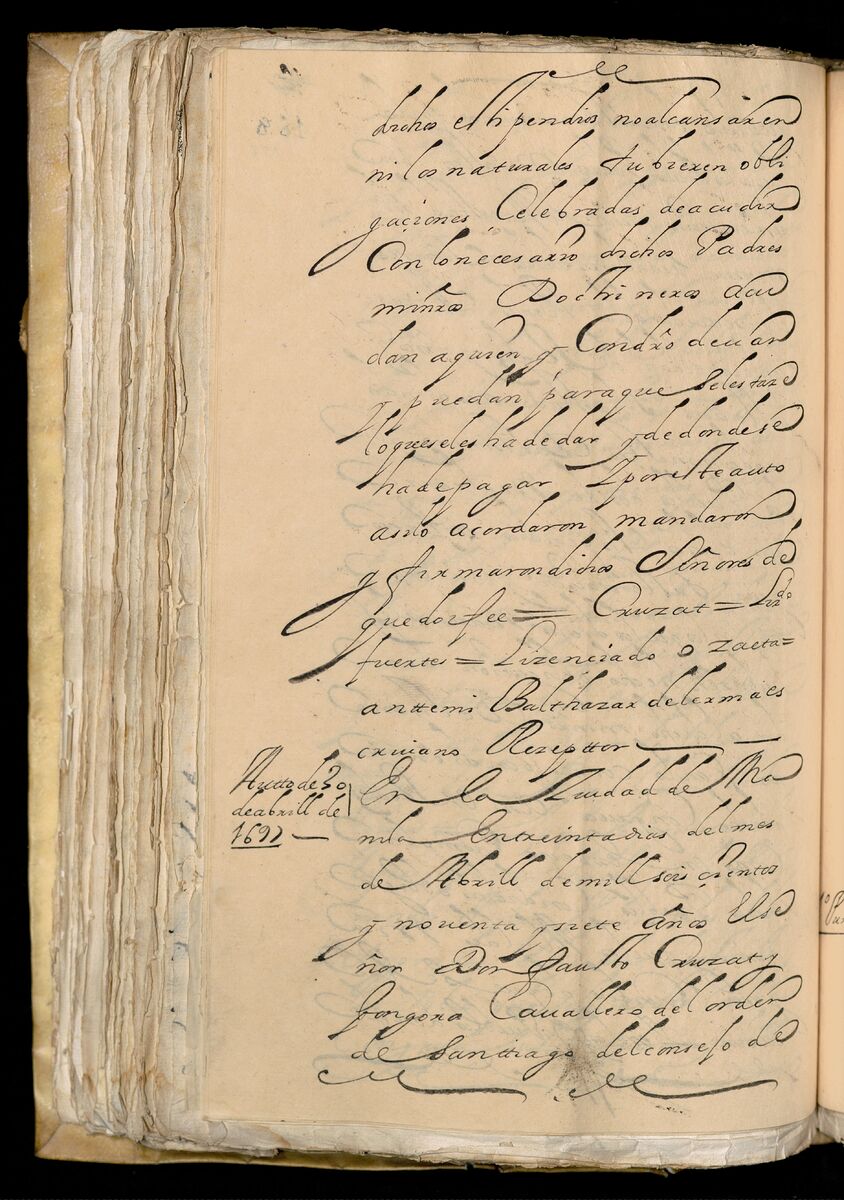 dichos estipendios no alcansaxen
ni los naturales tubiexen obli
gaçiones Celebradas de acudix
Con lo necesaxio dichos Padres
ministros Doctrinexos acu
dan a quien y Como deuan
y puedan para que seles taxe
lo que seles ha de dar y de donde se
ha de pagar Y por este auto
asilo acordaron mandaron
y fixmaron dichos Señores de
que doi fee = Cruzat = Lizdo
fuertes = Lizenciado ozaeta =
anttemi Balthazar de lexma es
criuano Rezepttor
Autto de 30
de abrill de
1697
En la Ziudad de Ma
nila En treinta dias del mes
de Abrill de mill seis çientos
y noventa y siete años El Se
ñor Don fausto Cruzat y
Gongora Cauallero del orden
de Santtiago del consejo de